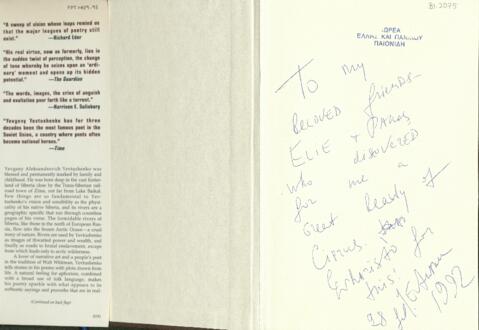 "A sweep of vision whose leaps remind us
that the major leagues of poetry still
exist."
—Richard Eder
"His real virtue, now as formerly, lies in
the sudden twist of perception, the change
of tone whereby he seizes upon an 'ordi-
nary' moment and opens up its hidden
potential."
—The Guardian
"The words, images, the cries of anguish
and exultation pour forth like a torrent."
—Harrison E. Salisbury
"Yevgeny Yevtushenko has for three
decades been the most famous poet in the
Soviet Union, a country where poets often
become national heroes."
—Time
Yevgeny Aleksandrovich Yevtushenko was
blessed and permanently marked by family and
childhood. He was born deep in the vast hinter-
land of Siberia close by the Trans-Siberian rail-
road town of Zima, not far from Lake Baikal.
Few things are so fundamental to Yev-
tushenko's vision and sensibility as the physi-
cality of his native Siberia, and its rivers are a
geographic specific that run through countless
pages of his verse. The formidable rivers of
Siberia, like those in the north of European Rus-
sia, flow into the frozen Arctic Ocean—a cruel
irony of nature. Rivers are used by Yevtushenko
as images of thwarted power and wealth, and
finally as roads to brutal enslavement, escape
from which leads only to arctic wilderness.
A lover of narrative art and a people's poet
in the tradition of Walt Whitman, Yevtushenko
tells stories in his poems with plots drawn from
life. A natural feeling for aphorism, combined
with a broad use of folk language, makes his
poetry sparkle with what appears to be
authentic sayings and proverbs that are in real-
(Continued on back flap)
B1.2075
ΔΩΡΕΑ
ΕΛΛΗΣ ΚΑΙ ΠΑΝΙΚΟΥ
ΠΑΙΟΝΙΔΗ
To my
BELOVED friends
ELLIE & PANOS
who discovered
for me a
great beauty of
Cyprus
Evtushenko for
28
1992